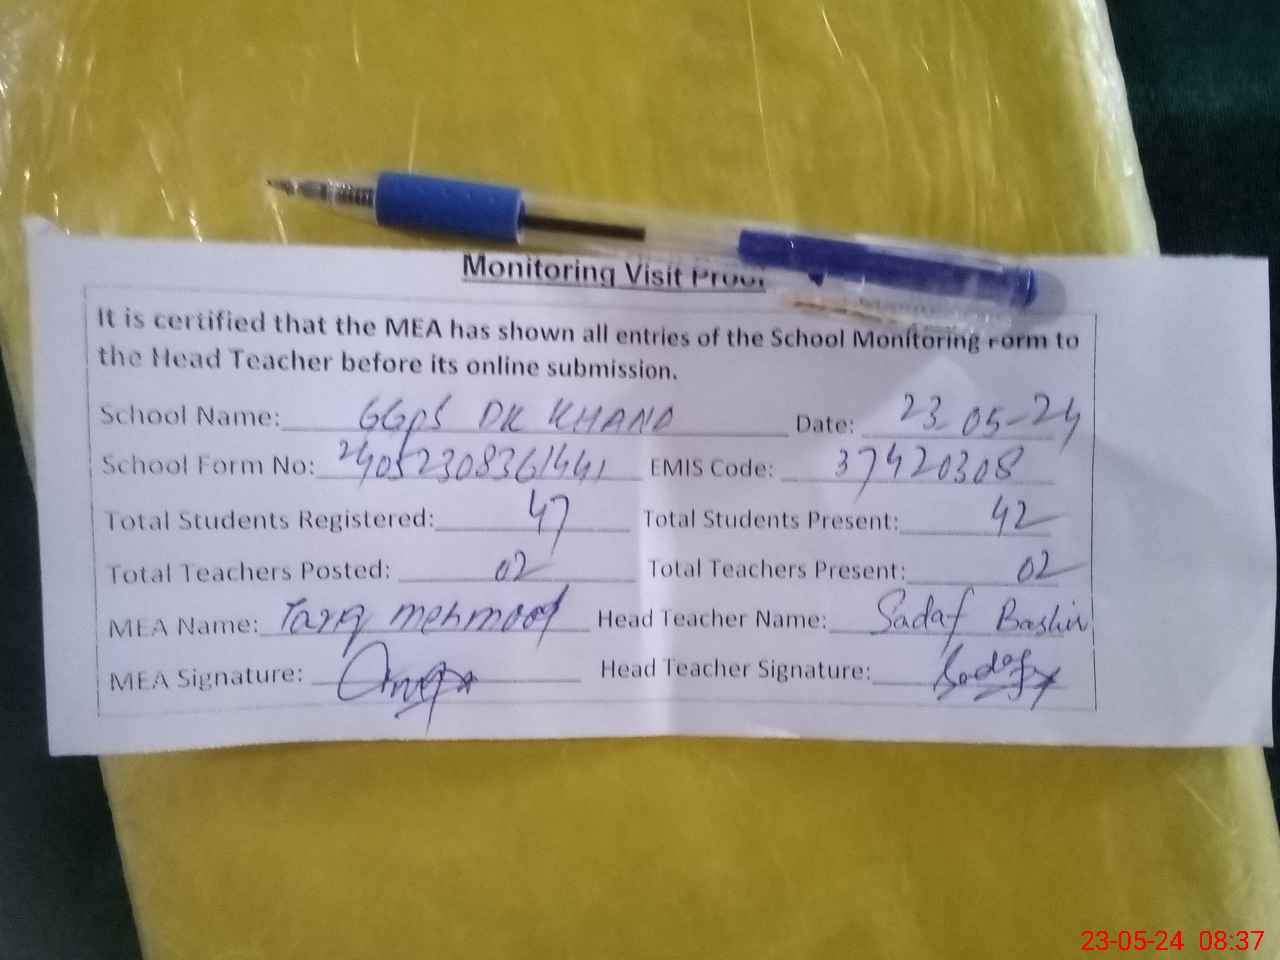 Monitoring Visit Proof
It is certified that the MEA has shown all entries of the School Monitoring Form to
the Head Teacher before its online submission.
School Name: GGPS DK KHANA Date: 23-05-24
School Form No: 24052308361441 EMIS Code: 37420308
Total Students Registered: 47 Total Students Present: 42
Total Teachers Posted: 02 Total Teachers Present: 02
MEA Name: Tariq mehmood Head Teacher Name: Sadaf Bashir
MEA Signature: Head Teacher Signature: Sadaf
23-05-24 08:37